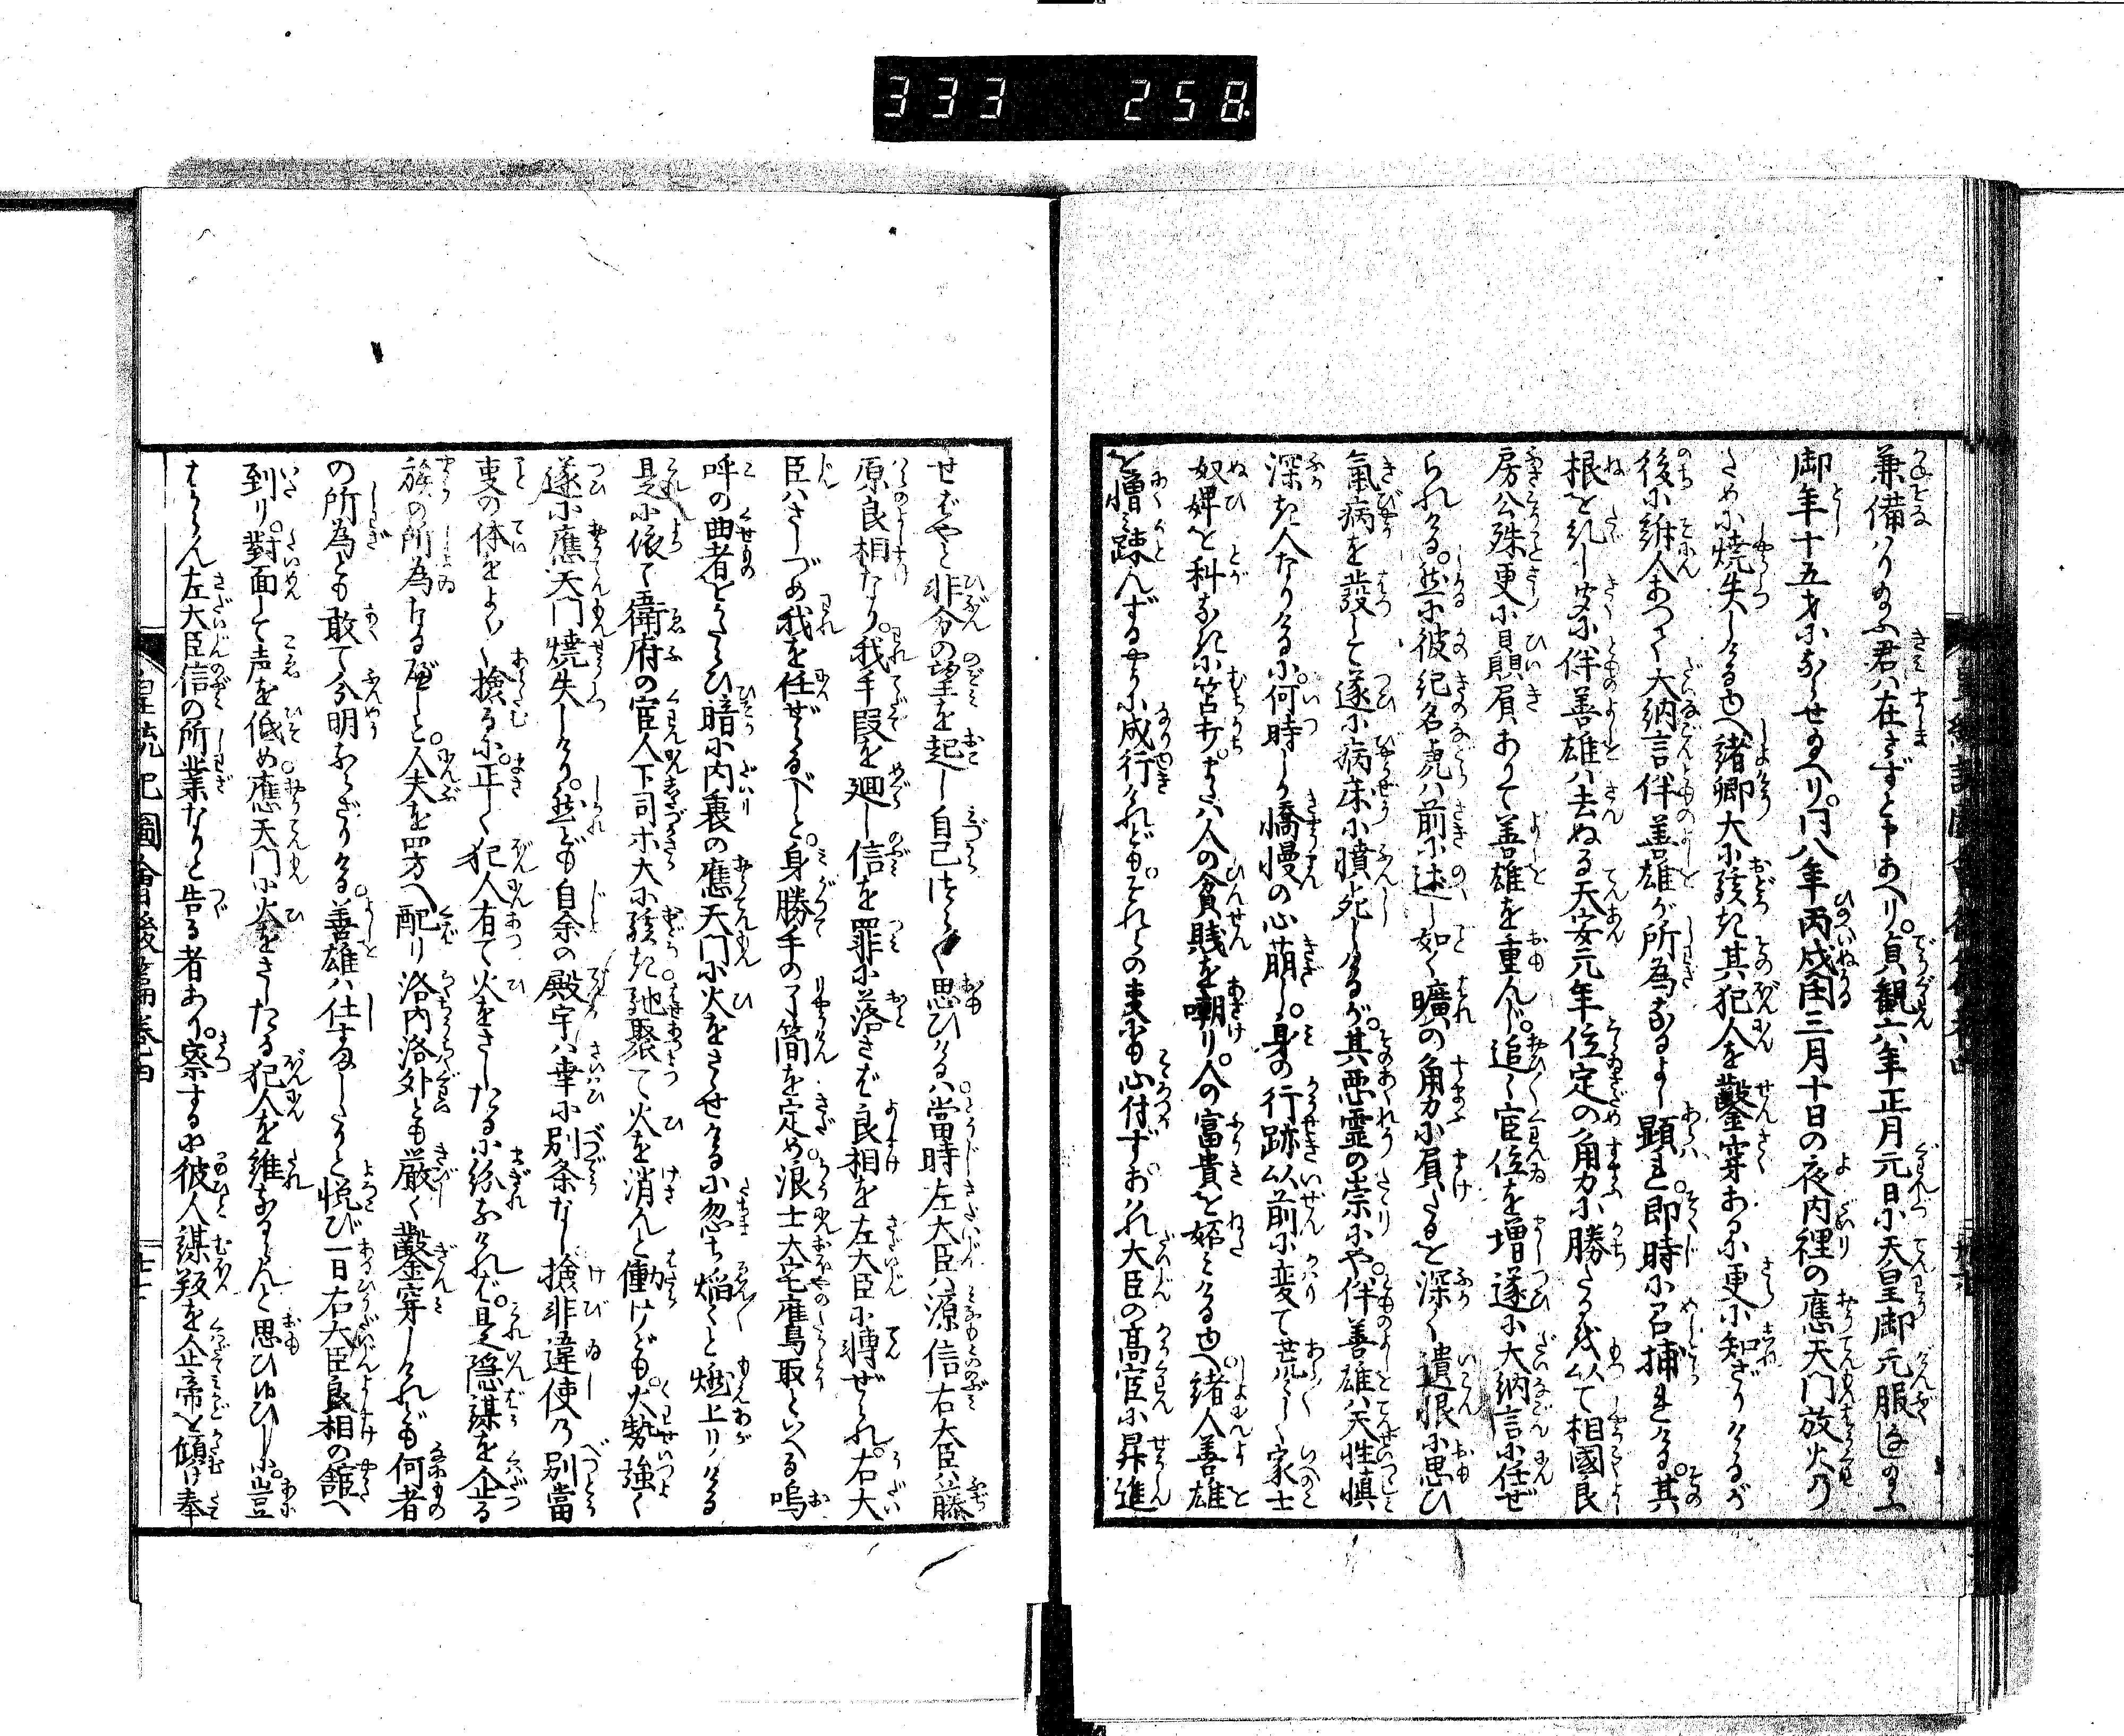 333 258
兼備はり給ふ君は在さずと申あへり。貞観六年正月元日に天皇御元服ましまし給ふ
御年十五才にならせ給へり。同八年丙戌閏三月十日の夜内裡の應天門放火の
ために焼失しけるゆへ諸卿大に駭き其犯人を鑿穿あるに更に知ざりけるが
後に訴人あつて大納言伴善雄が所為なるよし顕れ即時に召捕れける。其
根を糺し等に伴善雄は去ぬる天安元年位定の角力に勝たるを以て相國良
房公殊更に贔屓ありて善雄を重んじ。追々官位を増遂に大納言に任ぜ
られける。然に彼紀名虎は前に述し如く曠の角力に負たるを深く遺恨に思ひ
氣病を發して遂に病床に憤死しけるが。其悪霊の祟にや。伴善雄は天性慎
深き人なりけるに。何時しか憍慢の心萠し。身の行跡以前に変て荒々しく家士
奴婢を科なきに笞打。または人の貧賤を嘲り。人の富貴を妬みけるゆへ。諸人善雄
を憎み疎んずるやうに成行けれども。それらの事にも心付ず。おのれ大臣の高官に昇進
せばやと非分の望を起し自己つらつら思ひけるは。當時左大臣は源信右大臣は藤
原良相なり。我手段を廻し信を罪に落さば良相を左大臣に轉ぜられ。右大
臣はさしづめ我を任ぜらるべしと。身勝手の了簡を定め。浪士大宅鷹取といへる嗚
呼の曲者をかたらひ暗に内裏の應天門に火をささせけるに忽ち焔々と燃上りける
是に依て衛府の官人下司ホ大に駭き。馳聚て火を消んと働けども。火勢強く
遂に應天門焼失しけり。然ども自余の殿宇は幸に別条なし。検非違使の別當
事の体をよくよく撿るに。正しく犯人有て火をさしたるに紛なければ。是隠謀を企る
族の所為なるべしと。人夫を四方へ配り洛内洛外とも厳く鑿穿しけれども何者
の所為とも敢て分明ならざりける。善雄は仕すましたりと悦び一日右大臣良相の舘へ
到り。對面して声を低め。應天門に火をさしたる犯人を誰なるらんと思ひゆひしに。豈
はからん左大臣信の所業なりと告る者あり。察するに彼人謀叛を企帝を傾け奉
皇統記圖會後篇巻四